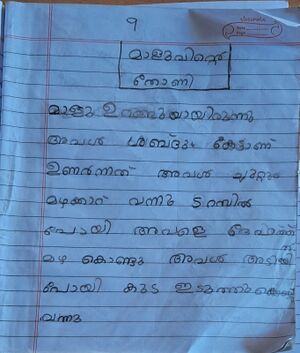 9
മാളുവിന്റെ
തോണി
മാളു ഉറങ്ങുയായിരുന്നു
അവൾ ശബ്ദം കേട്ടാണ്
ഉണർന്നത് അവൾ ചുറ്റും
മഴക്കാറ് വന്നു ടറസിൽ
പോയി അവളെ ദേഹത്ത്
മഴ കൊണ്ടു അവൾ അടിയി
പോയി കുട ഇടുത്തുകൊണ്ട്
വന്നു